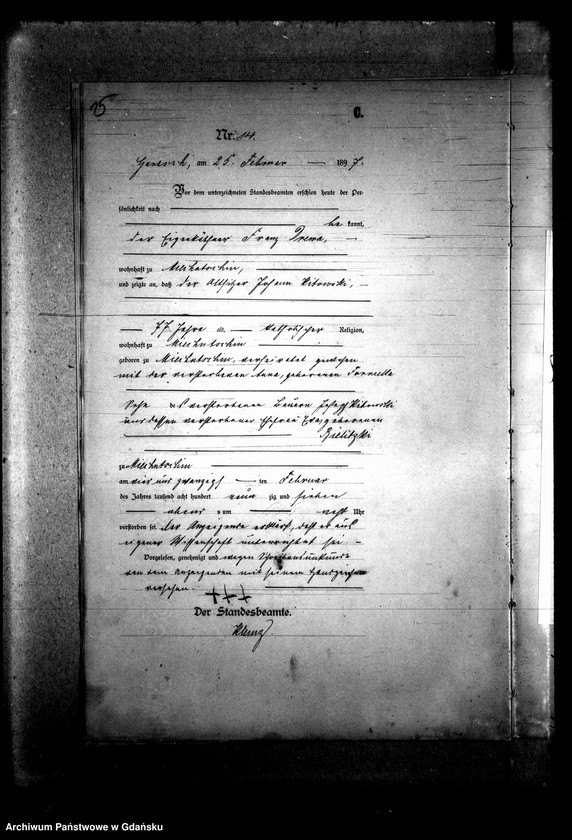 25
C.
Nr. 14.
am 25. Februar 1897.
Vor dem unterzeichneten Standesbeamten erschien heute der Per-
sönlichkeit nach
be kannt,
der Eigenkäthner Franz Drewa,
wohnhaft zu
und zeigte an, daß der Altsitzer Johann Kitowski,
77 Jahre alt, katholischer Religion,
wohnhaft zu
geboren zu verheiratet gewesen
mit der verstorbenen Anna, geborenen Formella
Sohn des verstorbenen Bauern Joseph Kitowski
und dessen verstorbener Ehefrau Eva, geborenen
zu
am vier und zwanzig ten Februar
des Jahres tausend acht hundert neun zig und sieben
abends um acht Uhr
verstorben sei. Der Anzeigende erklärt, daß er aus
eigener Wissenschaft unterrichtet sei
Vorgelesen, genehmigt und wegen Schreibensunkunde
von dem Anzeigenden mit seinem Handzeichen
versehen.
+++
Der Standesbeamte.
Archiwum Państwowe w Gdańsku